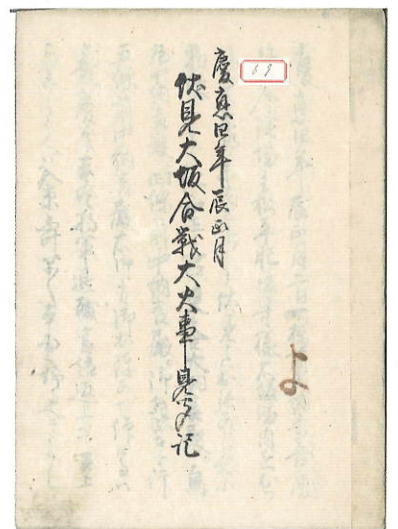 慶應四年辰正月
伏見大坂合戦大火事見聞記
69
よ